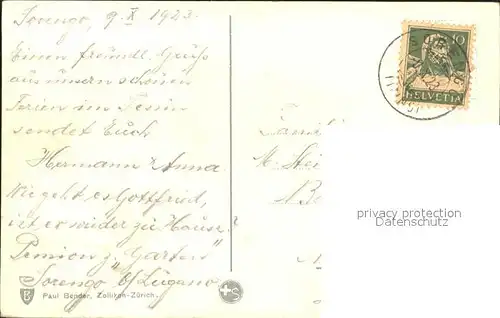 Sorengo, 9. X 1923.
Einen freundl. Gruß
aus unsern schönen
Ferien im Tessin
sendet Euch
Hermann & Anna
Wie geht es Gottfried,
ist er wieder zu Hause?
Pension z. "Garten"
Sorengo, b/Lugano
Paul Bender, Zollikon-Zürich.
10
HELVETIA
Famili
M. Stei
privacy protection
Datenschutz